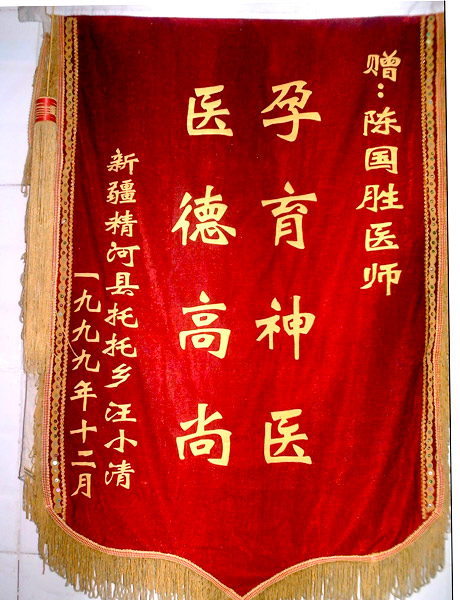 赠：陈国胜医师
孕育神医
医德高尚
新疆精河县托托乡 汪小清
一九九九年十二月